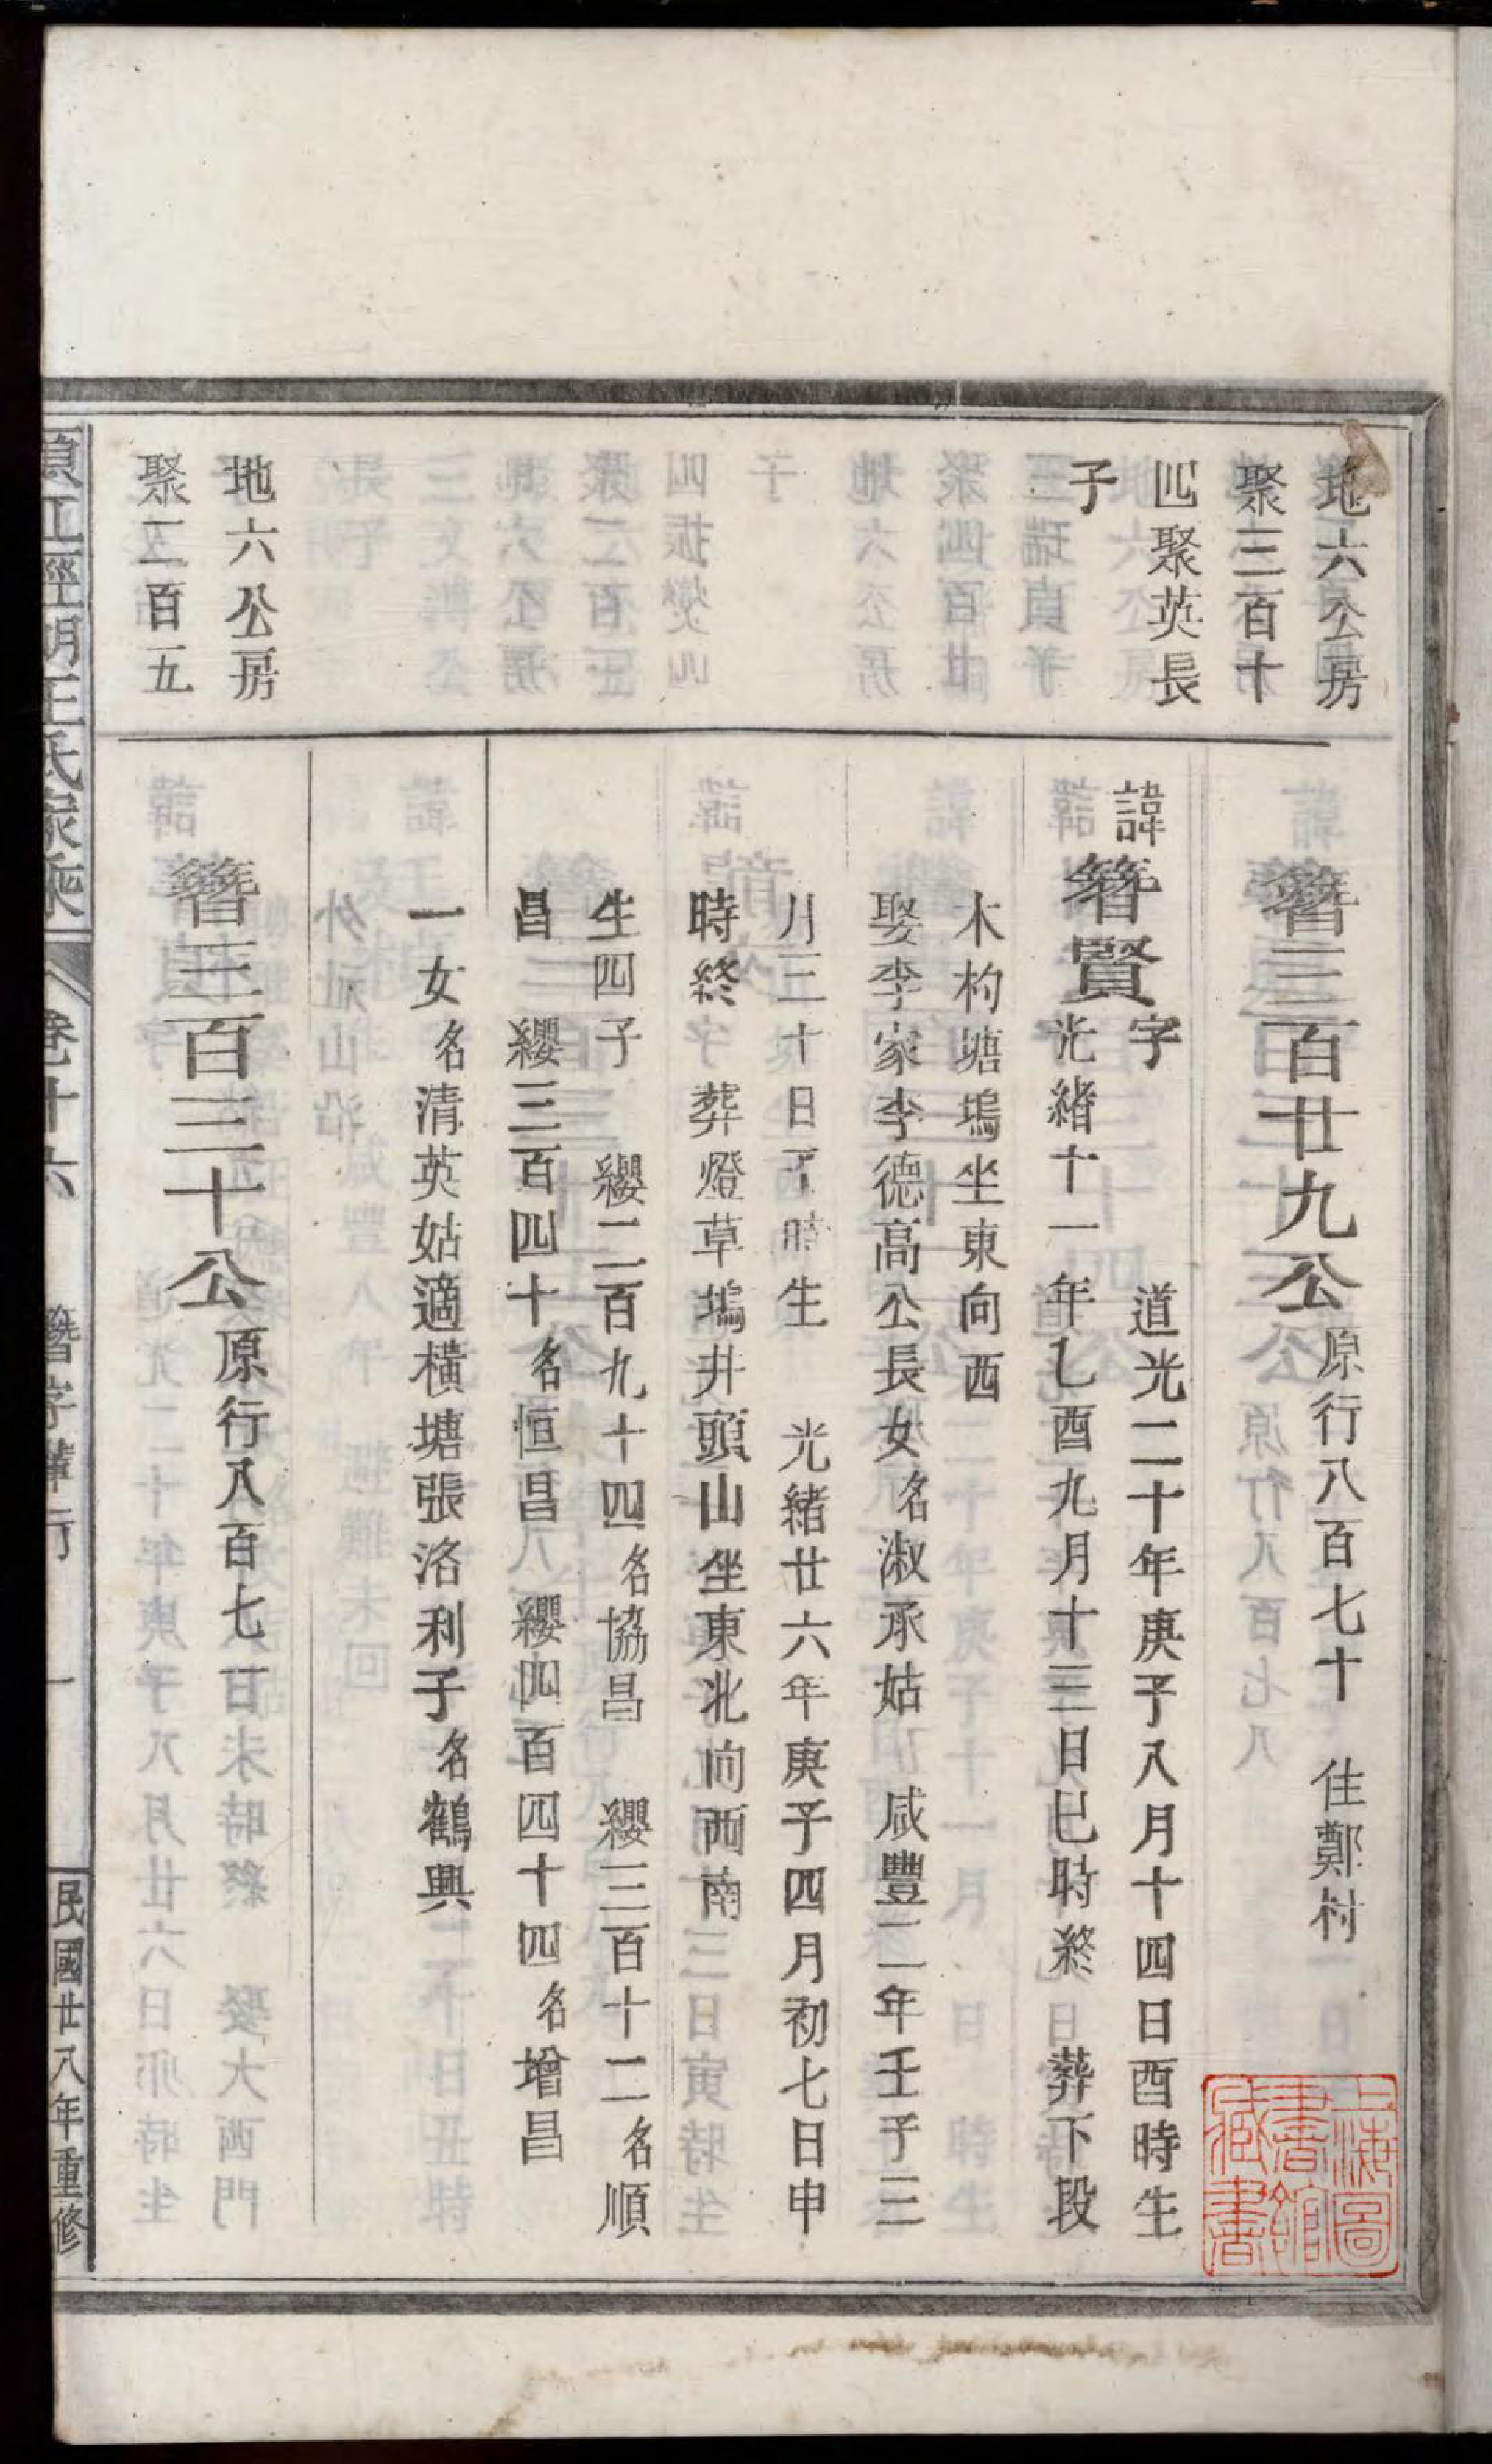 地六公房
聚三百十
四聚英長
子
簪三百廿九公原行八百七十 住鄭村
諱簪賢字 道光二十年庚子八月十四日酉時生
光緒十一年乙酉九月十三日巳時終 葬下段
木杓塘塢坐東向西
娶李家李德高公長女名淑承姑 咸豐二年壬子三
月三十日子時生 光緒廿六年庚子四月初七日申
時終 葬燈草塢井頭山坐東北向西南
生四子 纓二百九十四名協昌 纓三百十二名順
昌 纓三百四十名恒昌 纓四百四十四名增昌
一女名清英姑適橫塘張洛利子名鶴興
地六公房
聚二百五
簪三百三十公原行八百七
王氏家乘
卷十六
簪字輩行
一
民國廿八年重修
上海圖書館藏書